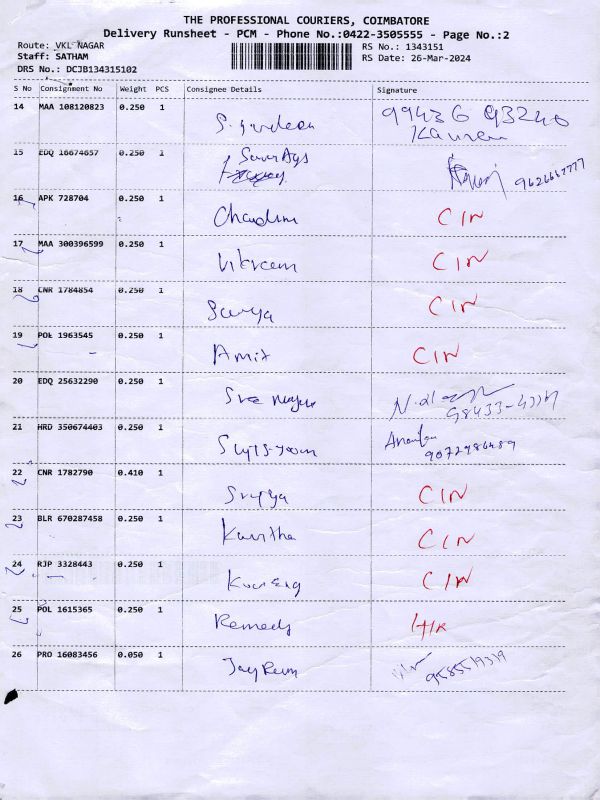 THE PROFESSIONAL COURIERS, COIMBATORE
Delivery Runsheet - PCM - Phone No.:0422-3505555 - Page No.:2
Route: VKL NAGAR RS No.: 1343151
Staff: SATHAM RS Date: 26-Mar-2024
DRS No.: DCJB134315102
S No Consignment No Weight PCS Consignee Details Signature
14 MAA 108120823 0.250 1 99436 93240
15 EDQ 16674657 0.250 1
16 APK 728704 0.250 1 CIN
17 MAA 300396599 0.250 1 Vikram CIN
18 CNR 1784854 0.250 1 Surya CIN
19 POL 1963545 0.250 1 Amit CIN
20 EDQ 25632290 0.250 1 Sree
21 HRD 350674403 0.250 1
22 CNR 1782790 0.410 1 CIN
23 BLR 670287458 0.250 1 Kavitha CIN
24 RJP 3328443 0.250 1 CIN
25 POL 1615365 0.250 1 Remedy
26 PRO 16083456 0.050 1 Jay Ram